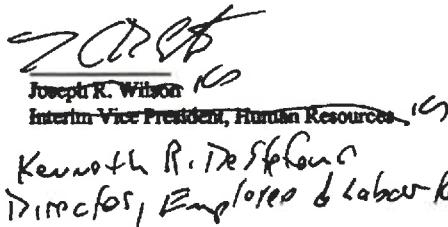 Joseph R. Wilson
Interim Vice President, Human Resources
Kenneth R. DeStefano
Director, Employee & Labor